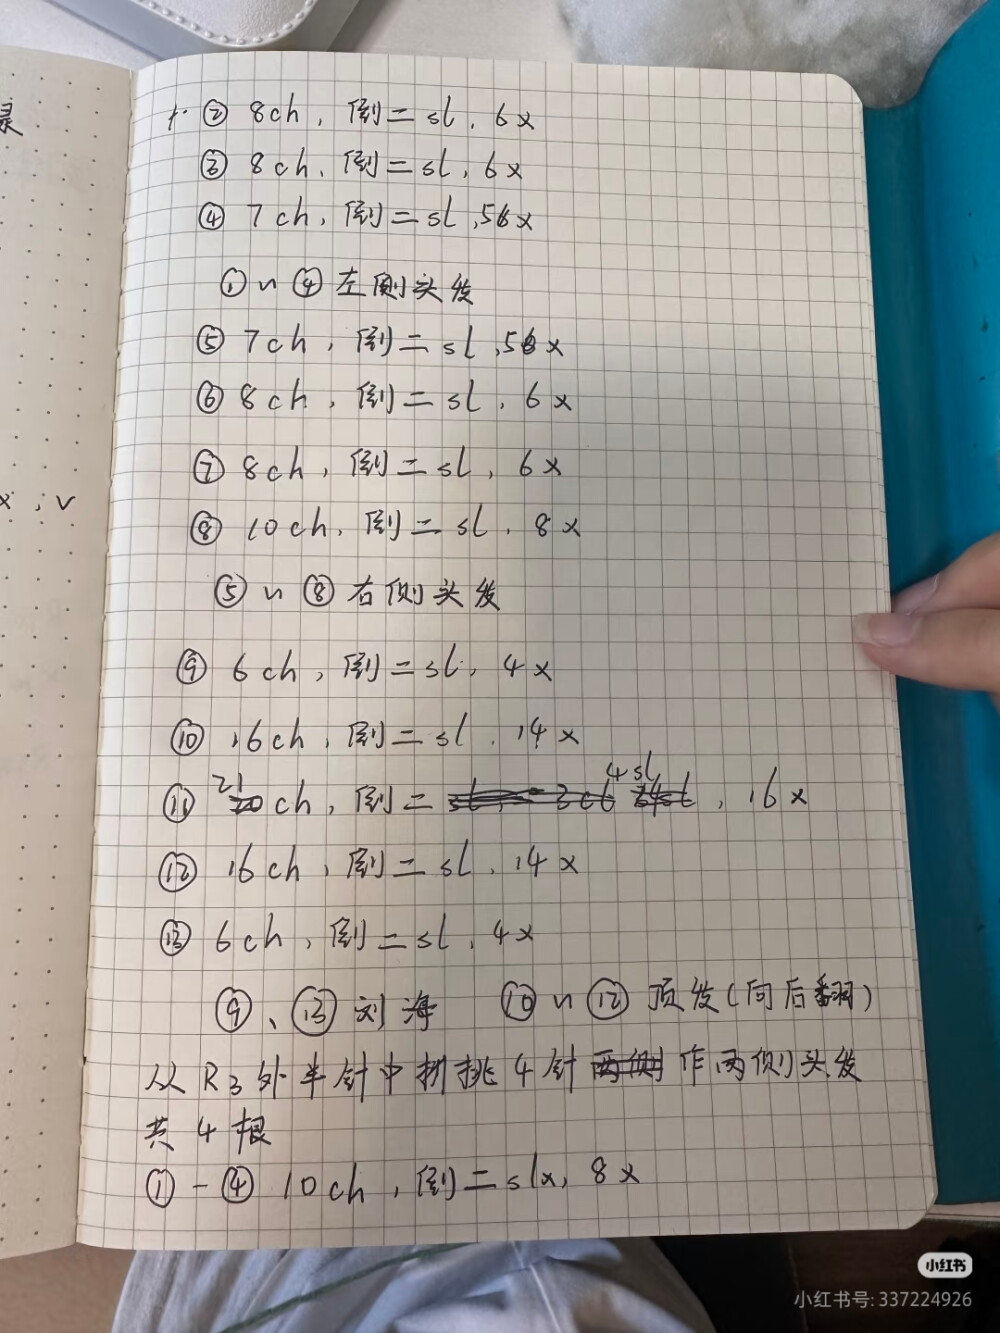 录
x , v
② 8ch, 倒二sl, 6x
③ 8ch, 倒二sl, 6x
④ 7ch, 倒二sl, 5x
①~④左侧头发
⑤ 7ch, 倒二sl, 5x
⑥ 8ch, 倒二sl, 6x
⑦ 8ch, 倒二sl, 6x
⑧ 10ch, 倒二sl, 8x
⑤~⑧右侧头发
⑨ 6ch, 倒二sl, 4x
⑩ 16ch, 倒二sl, 14x
⑪ 21ch, 倒二 4sl, 16x
⑫ 16ch, 倒二sl, 14x
⑬ 6ch, 倒二sl, 4x
⑨、⑬刘海 ⑩~⑫顶发(向后翻)
从R3外半针中挑4针作两侧头发
共4根
①-④ 10ch, 倒二slx, 8x
小红书
小红书号: 337224926